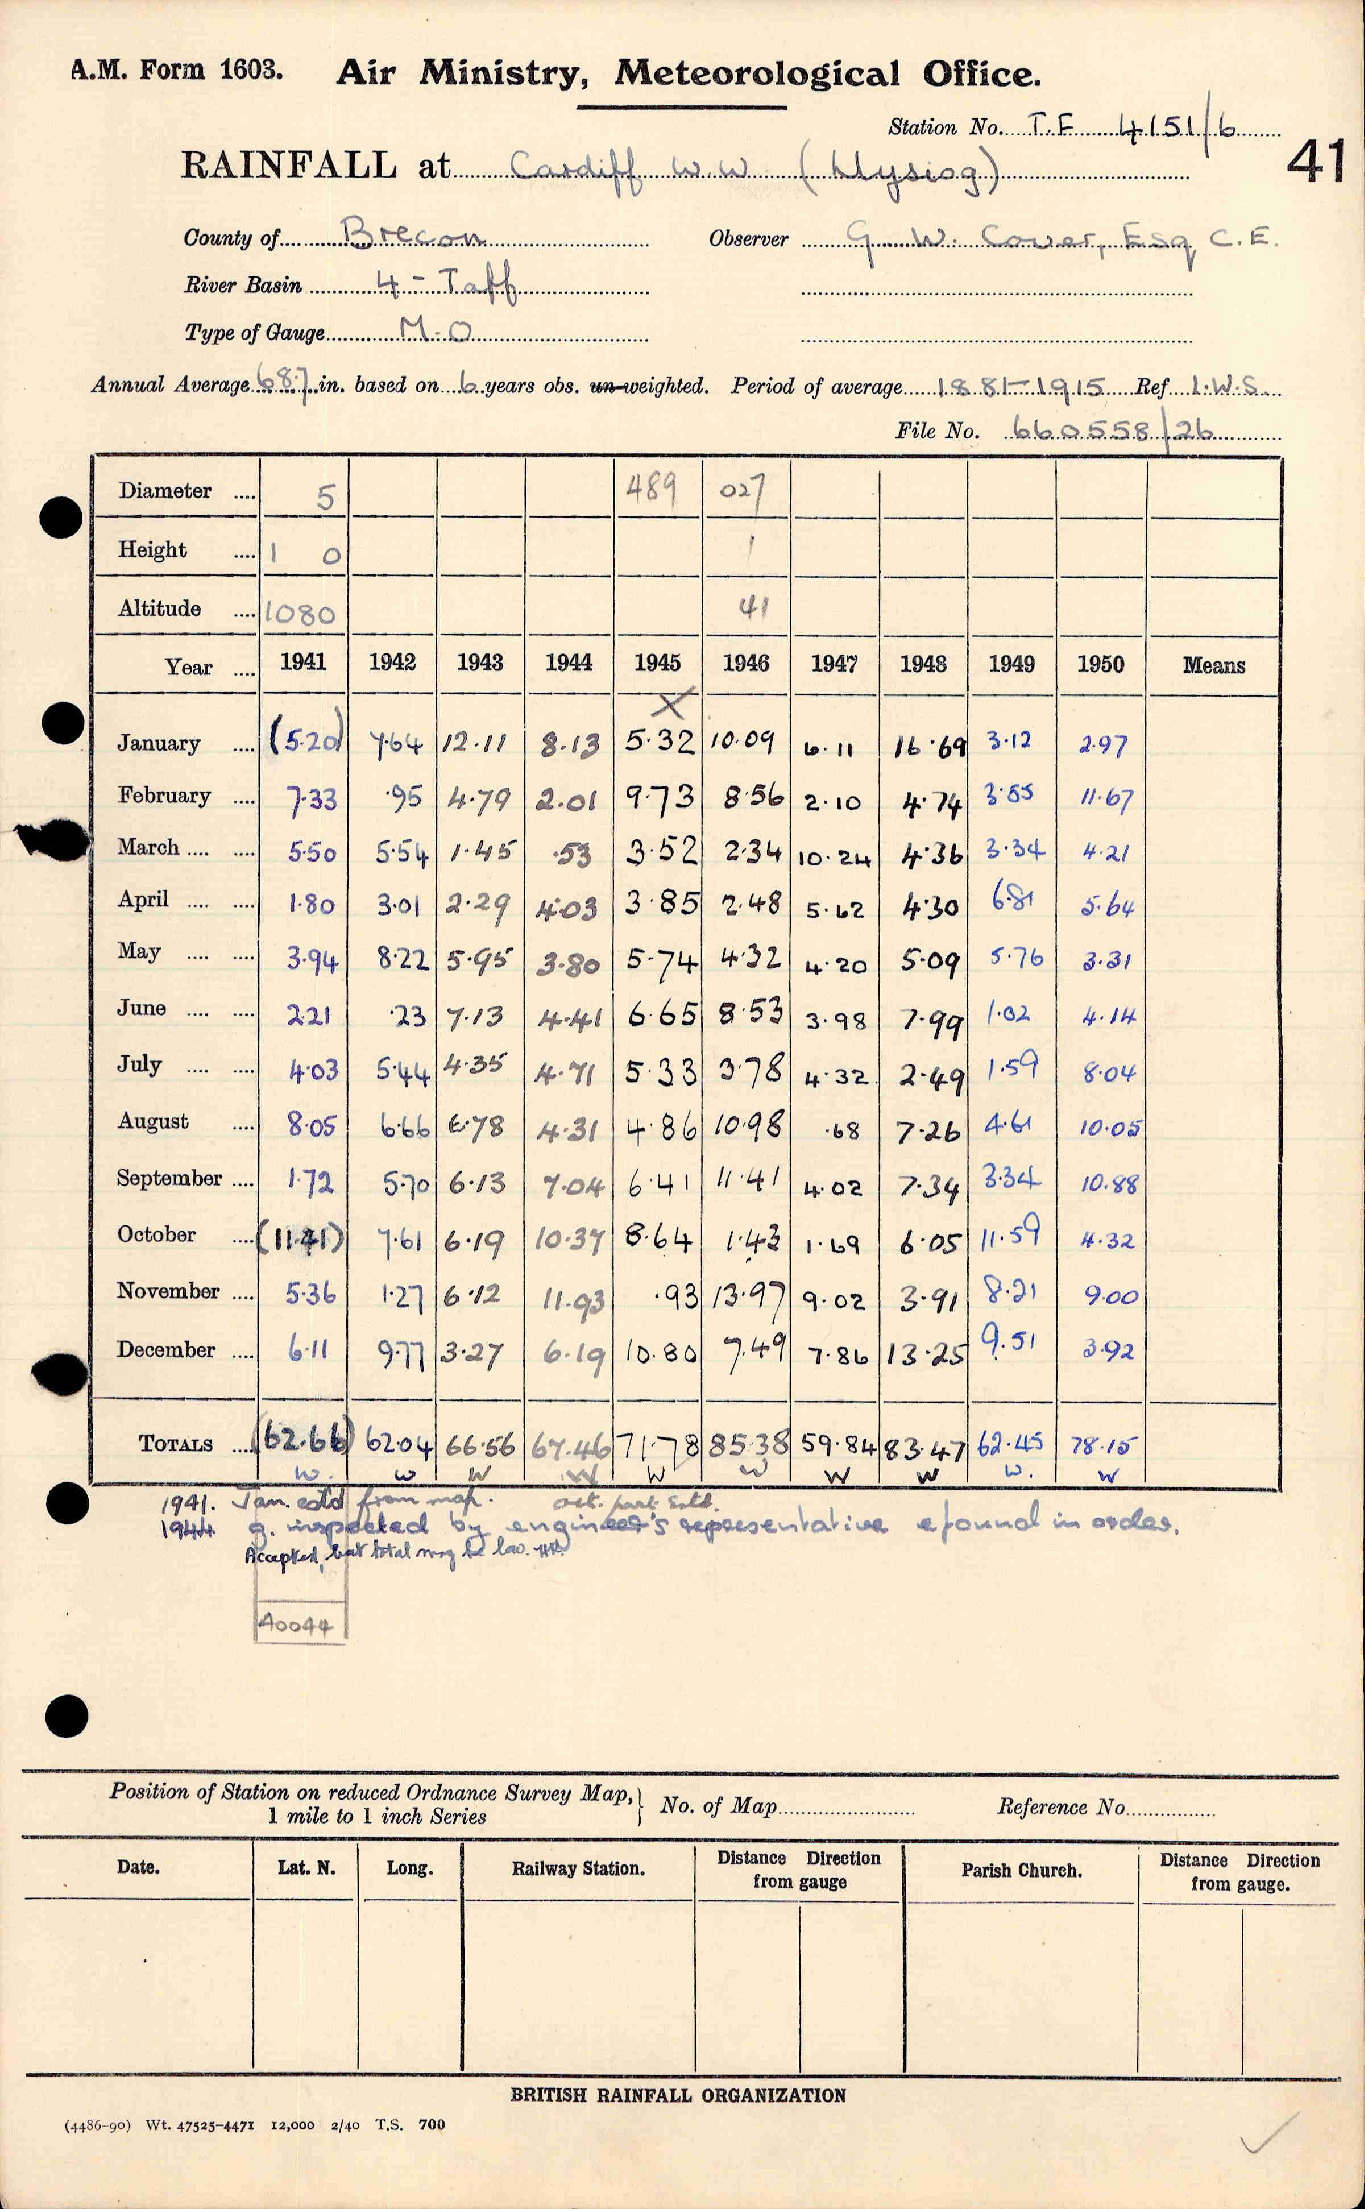 A.M. Form 1603. Air Ministry, Meteorological Office.
Station No. T.F 4151/6
41
RAINFALL at Cardiff W.W (Llysiog)
County of Brecon Observer G. W. Cover, Esq, C.E.
River Basin 4 - Taff
Type of Gauge M.O
Annual Average 68.7 in. based on 6 years obs. un-weighted. Period of average 1881-1915 Ref I.W.S.
File No. 660558/26
Diameter .... 5 489 027
Height .... 1 0 1
Altitude .... 1080 41
Year .... 1941 1942 1943 1944 1945 1946 1947 1948 1949 1950 Means
X
January .... (5.20) 7.64 12.11 8.13 5.32 10.09 6.11 16.69 3.12 2.97
February .... 7.33 .95 4.79 2.01 9.73 8.56 2.10 4.74 3.55 11.67
March .... .... 5.50 5.54 1.45 .53 3.52 2.34 10.24 4.36 3.34 4.21
April .... .... 1.80 3.01 2.29 4.03 3.85 2.48 5.62 4.30 6.81 5.64
May .... .... 3.94 8.22 5.95 3.80 5.74 4.32 4.20 5.09 5.76 3.31
June .... .... 2.21 .23 7.13 4.41 6.65 8.53 3.98 7.99 1.02 4.14
July .... .... 4.03 5.44 4.35 4.71 5.33 3.78 4.32 2.49 1.59 8.04
August .... 8.05 6.66 6.78 4.31 4.86 10.98 .68 7.26 4.61 10.05
September .... 1.72 5.70 6.13 7.04 6.41 11.41 4.02 7.34 3.34 10.88
October .... (11.41) 7.61 6.19 10.37 8.64 1.43 1.69 6.05 11.59 4.32
November .... 5.36 1.27 6.12 11.93 .93 13.97 9.02 3.91 8.21 9.00
December .... 6.11 9.77 3.27 6.19 10.80 7.49 7.86 13.25 9.51 3.92
TOTALS .... (62.66) 62.04 66.56 67.46 71.78 85.38 59.84 83.47 62.45 78.15
W. W W W W W W W W. W
1941. Jan. estd from map. Oct. part Estd.
1944 g. inspected by engineer's representative & found in order.
Accepted, but total may be low.
A0044
Position of Station on reduced Ordnance Survey Map,} No. of Map Reference No.
1 mile to 1 inch Series
Date. Lat. N. Long. Railway Station. Distance Direction from gauge Parish Church. Distance Direction from gauge.
BRITISH RAINFALL ORGANIZATION
(4486-90) Wt. 47525-4471 12,000 2/40 T.S. 700